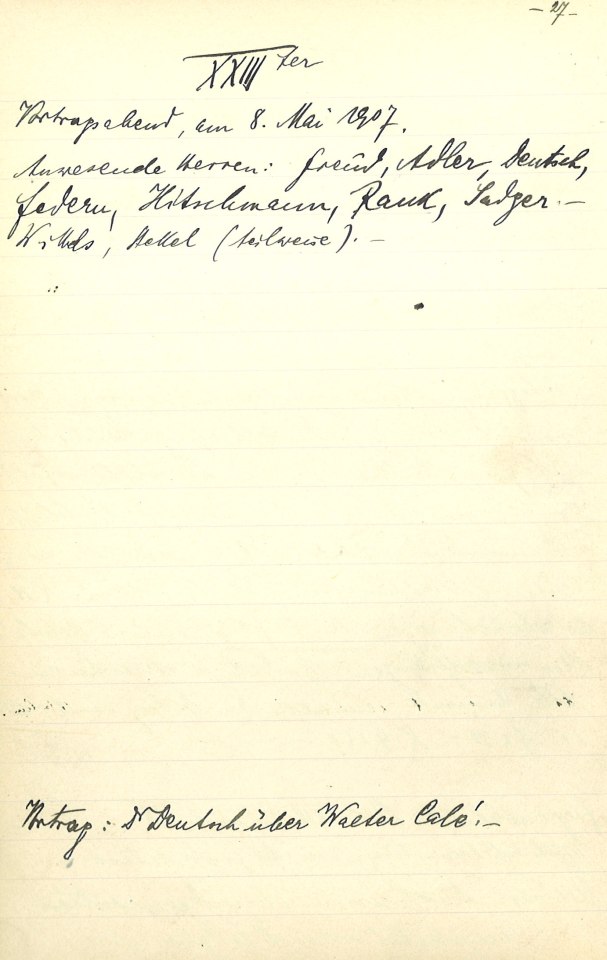 - 27 -
XXIIIter
Vortragsabend, am 8. Mai 1907.
Anwesende Herren: Freud, Adler, Deutsch,
Federn, Hitschmann, Rank, Sadger. -
Wittels, Stekel (teilweise). -
Vortrag: Dr Deutsch über Walter Calé. -